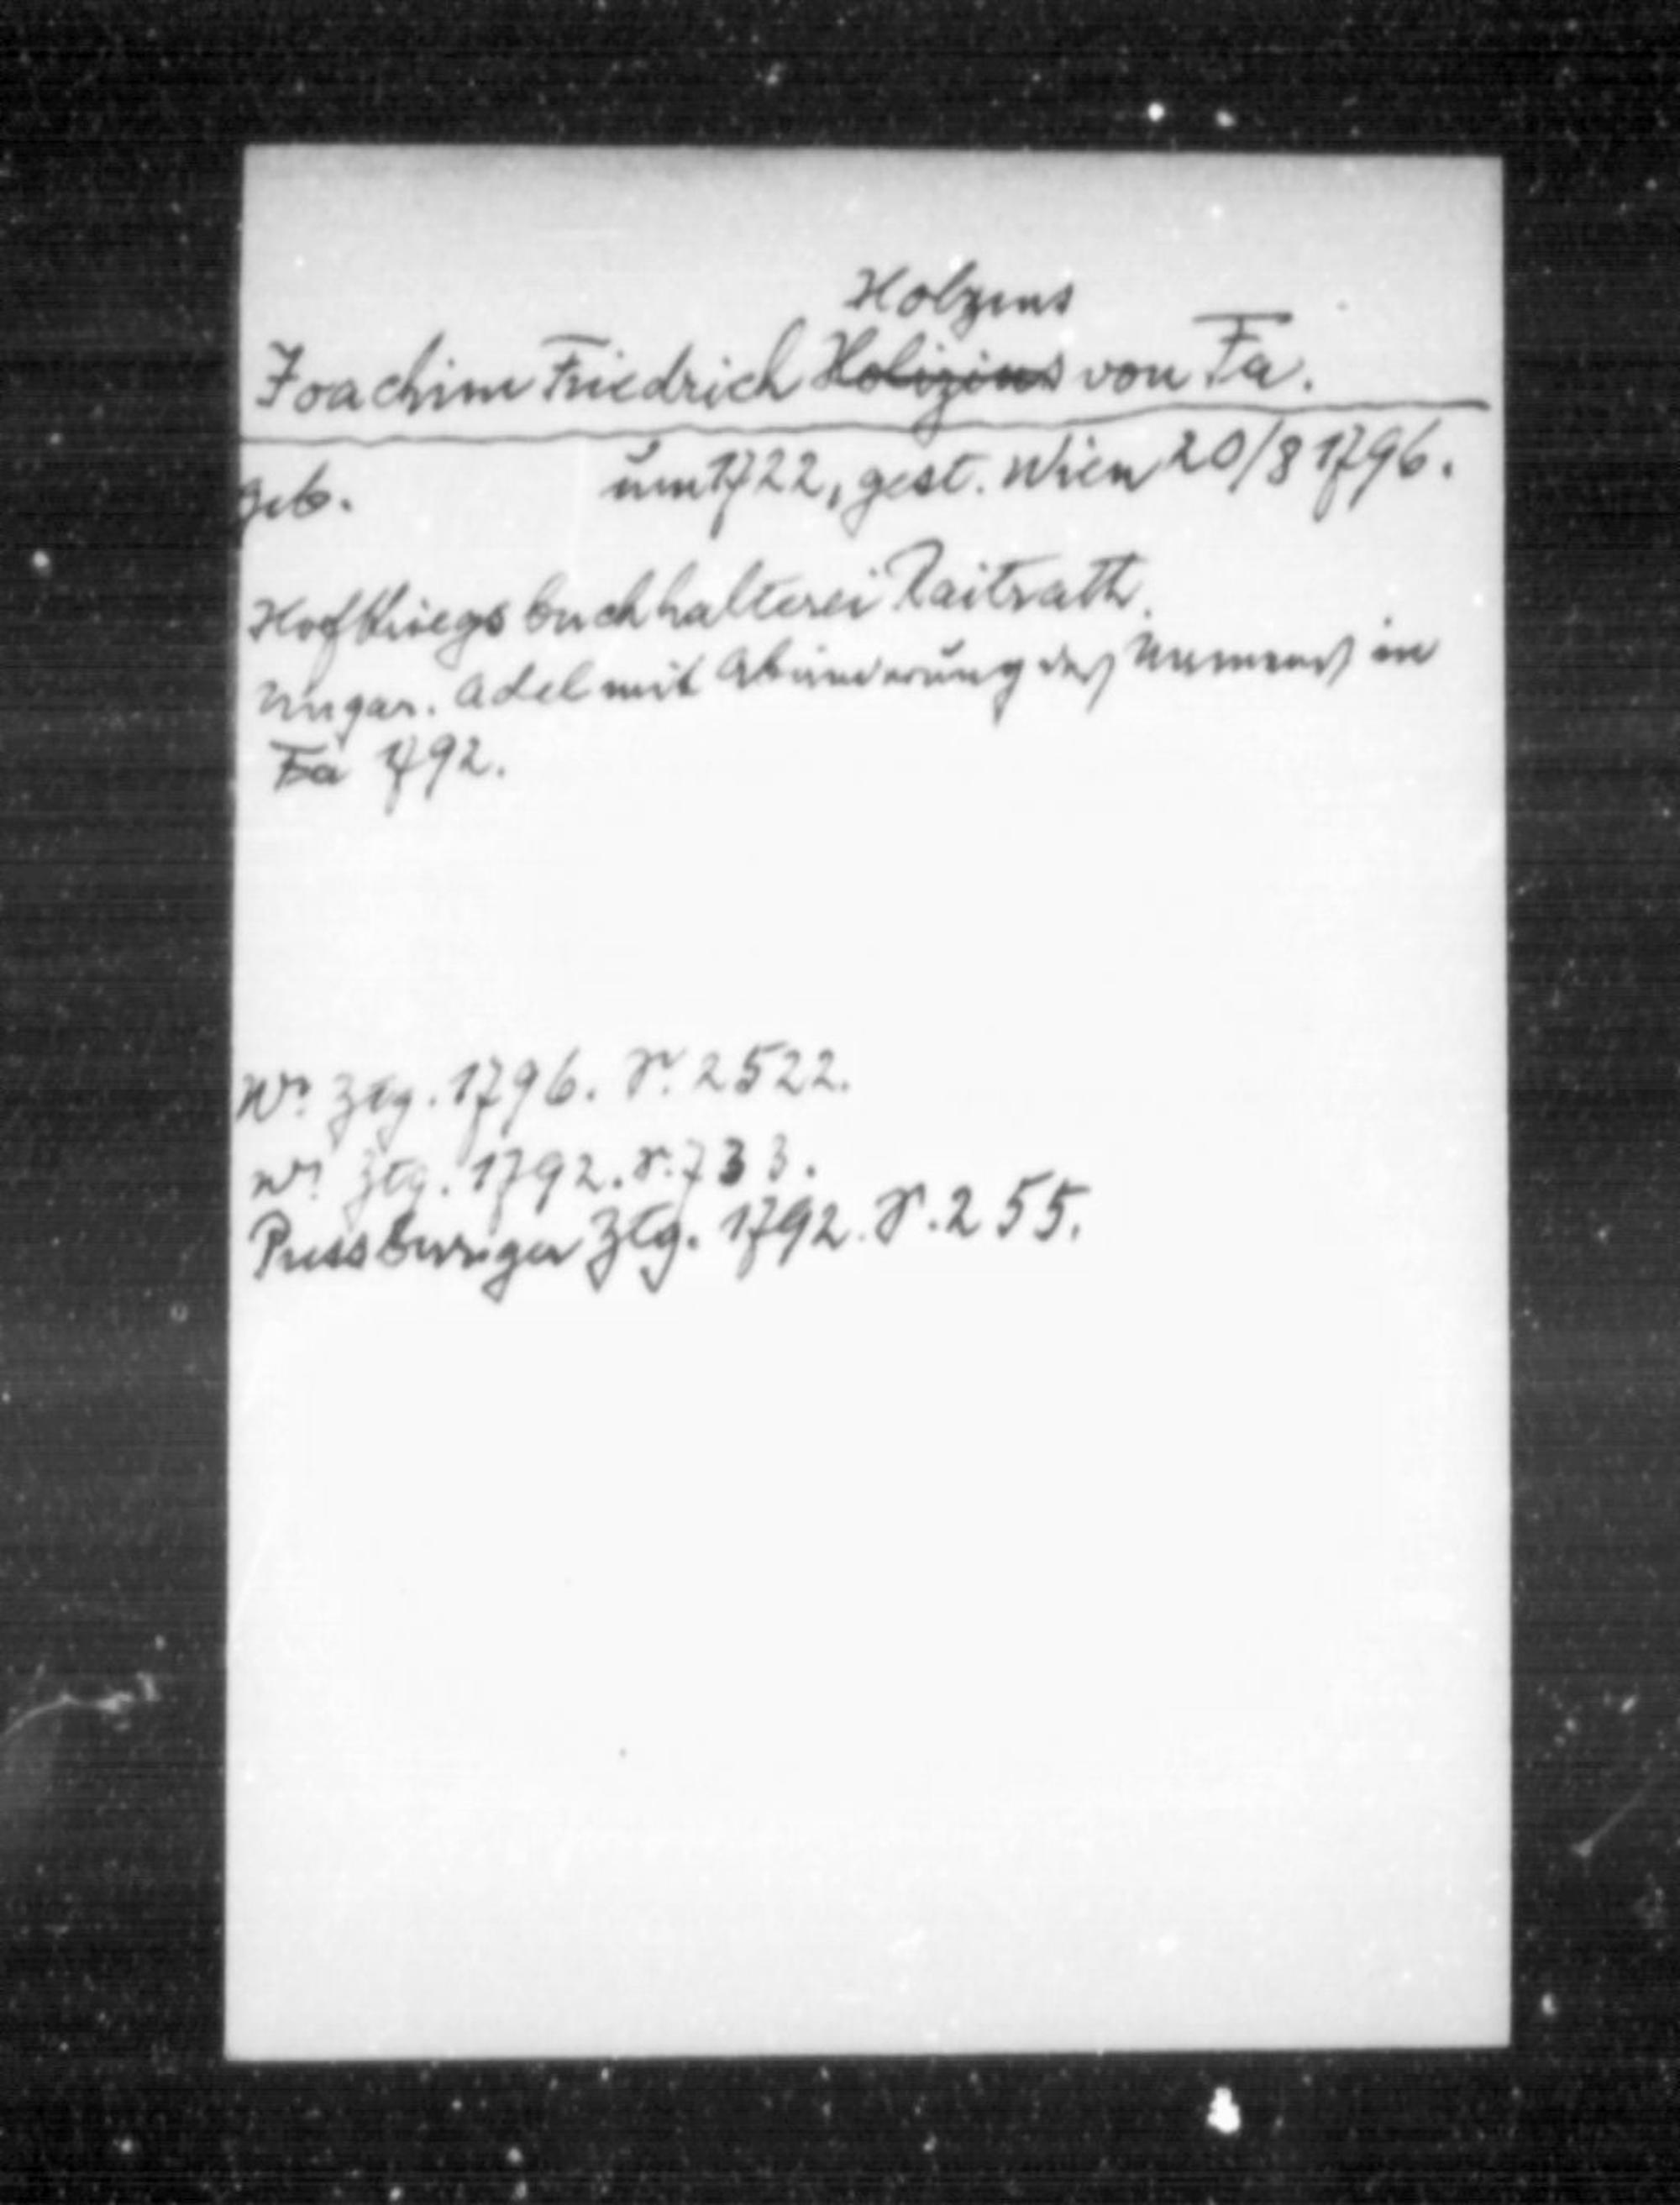 Holzens
Joachim Friedrich Holizius von Fa.
geb. um 1722, gest. Wien 20/8 1796.
Hofkriegsbuchhalterei Raitrath.
Ungar. Adel mit Abänderung des Namens in
Fa 1792.
Wr. Ztg. 1796. S. 2522.
Wr. Ztg. 1792. S. 733.
Pressburger Ztg. 1792. S. 255.